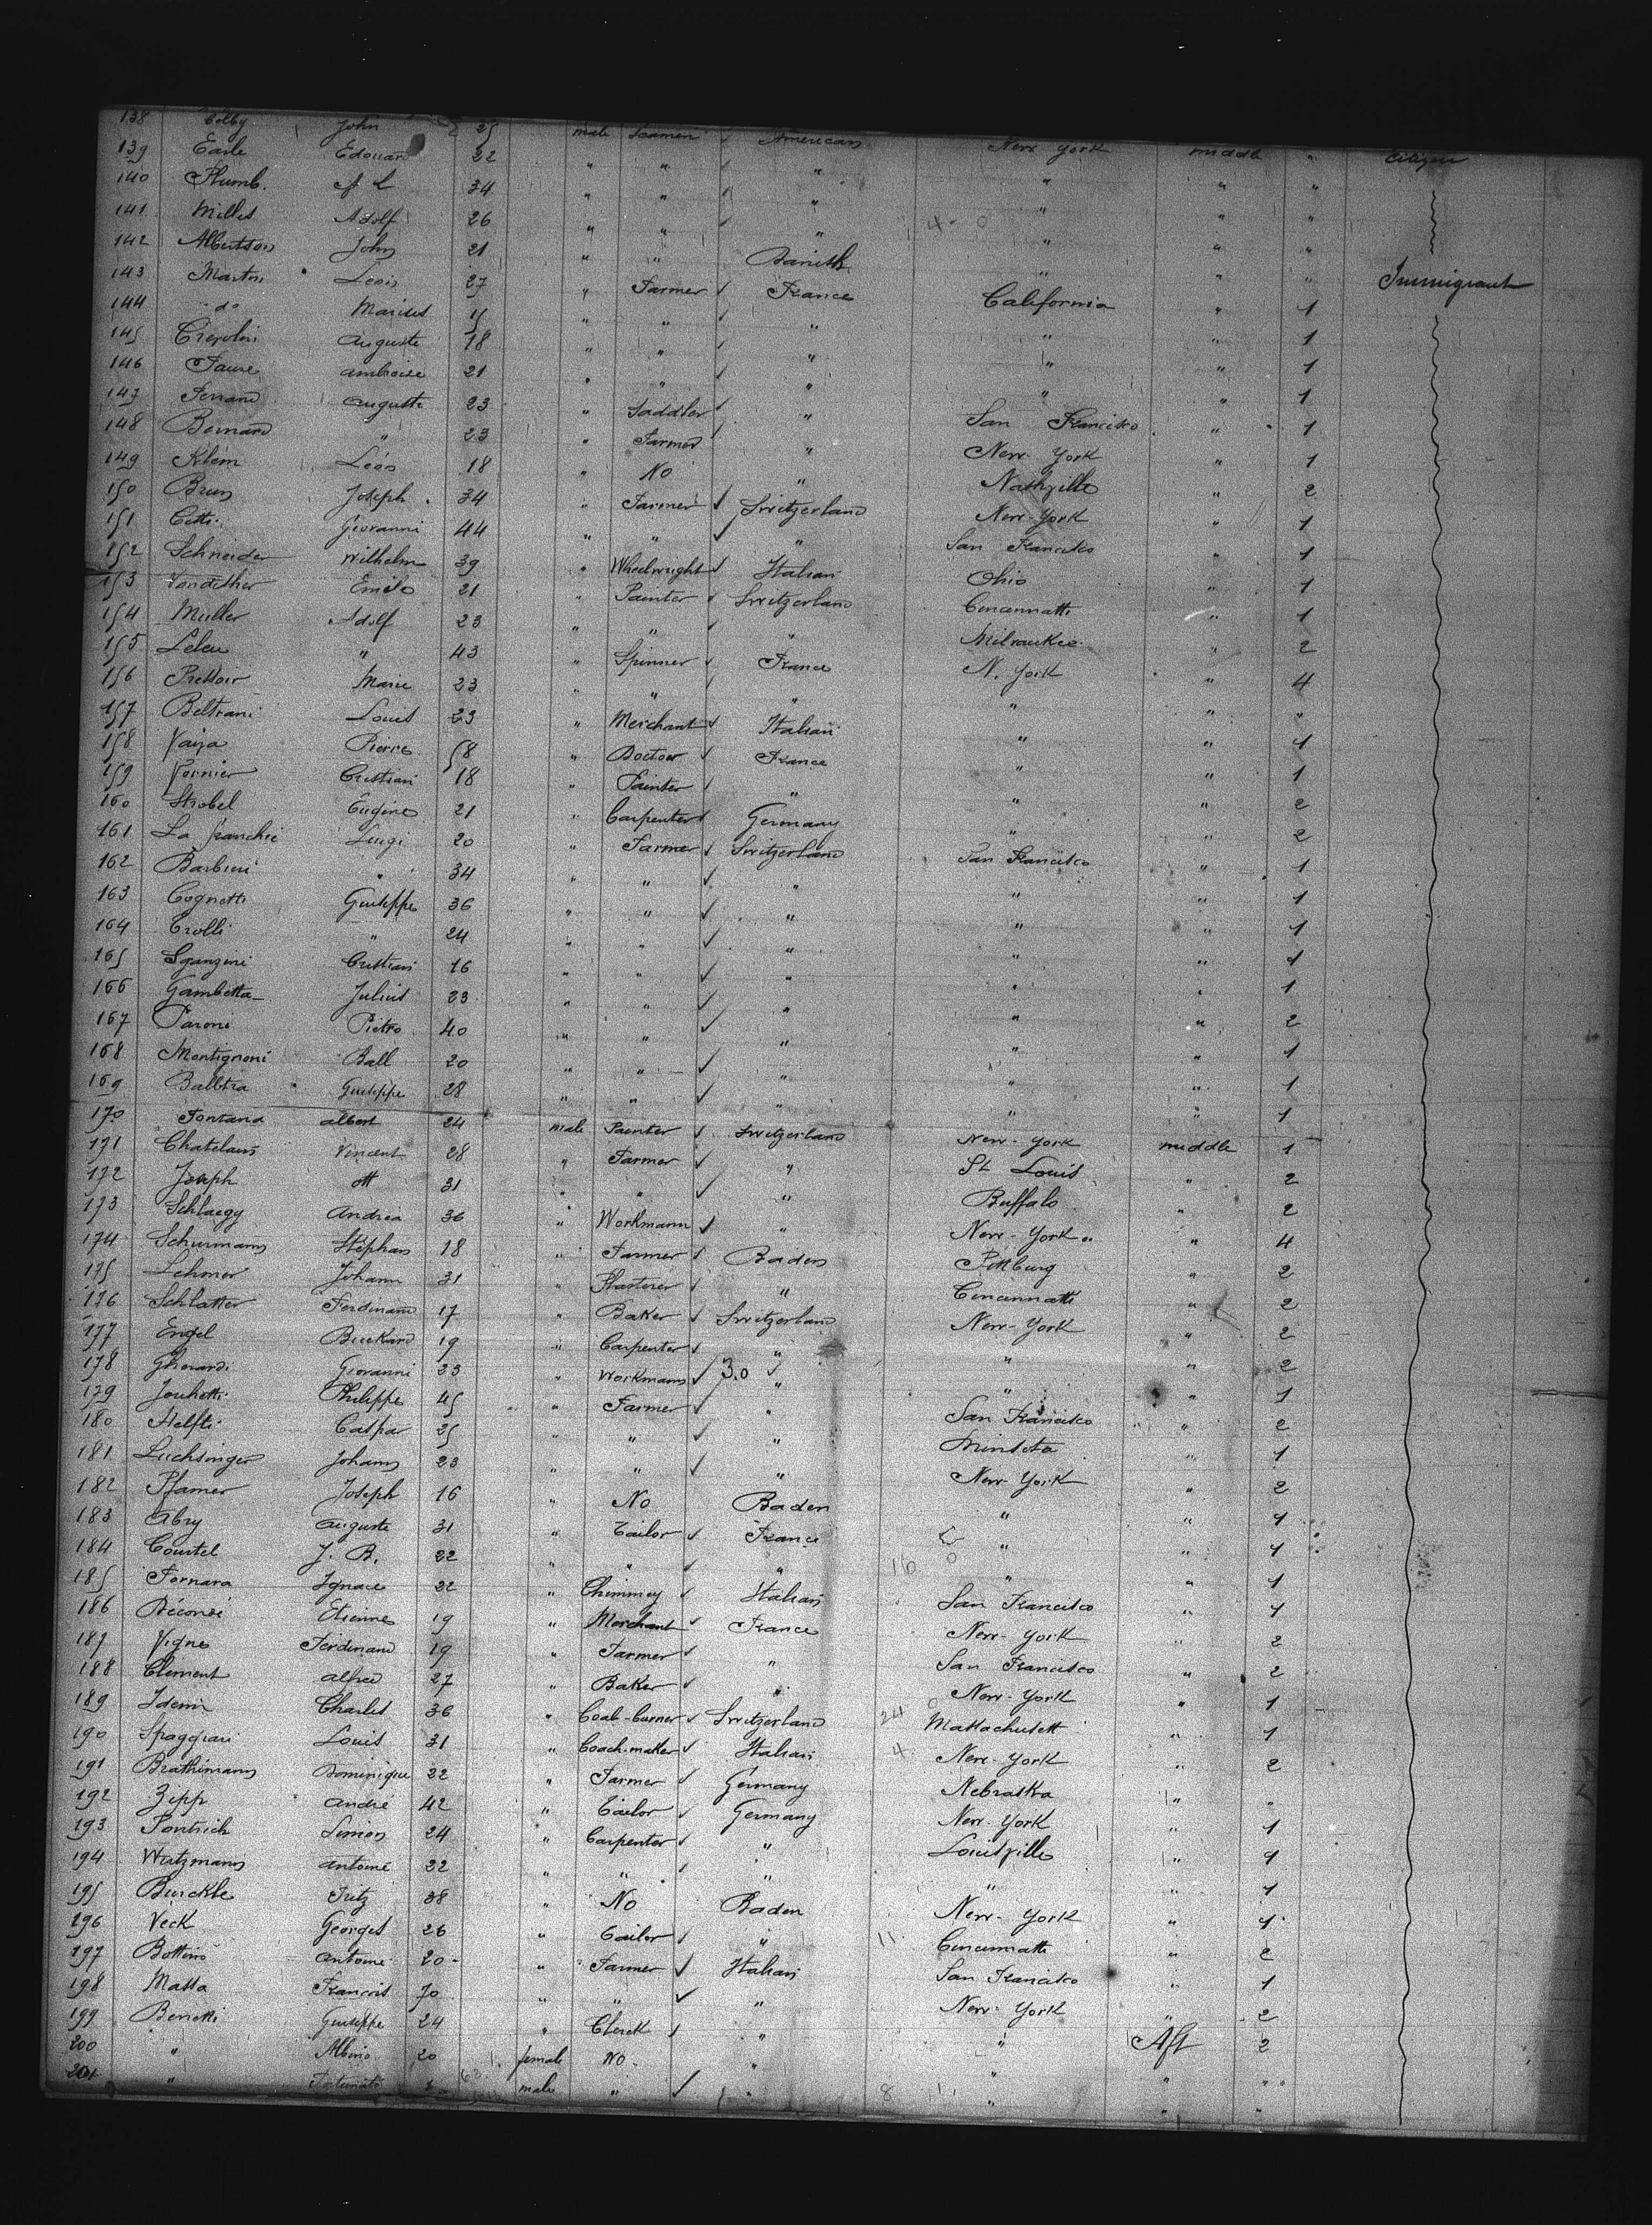 138 Colby John 25 male Seamen American New York middle " Citizen
139 Earle Edouard 22 " " " " " "
140 Plumb. J L 34 " " " " " "
141 Millet Adolf 26 " " " " " "
142 Albertson John 21 " " Danish " " "
143 Martin Leon 27 " Farmer France California " 1 Immigrant
144 do Marius 15 " " " " " 1
145 Crevolin Auguste 18 " " " " " 1
146 Faure Ambroise 21 " " " " " 1
147 Ferrand Auguste 23 " Saddler " San Francisco " 1
148 Bernard " 23 " Farmer " New York " 1
149 Klein Léon 18 " No " Nashville " 2
150 Brun Joseph 34 " Farmer Switzerland New-York " 1
151 Cetti Giovanni 44 " " " San Francisco " 1
152 Schneider Wilhelm 39 " Wheelwright Italian Ohio " 1
153 Vondither Emile 21 " Painter Switzerland Cincinnatti " 1
154 Muller Adolf 23 " " " Milwaukee " 2
155 Leleu " 43 " Spinner France N. York " 4
156 Pressoir Marie 23 " " " " " "
157 Beltrani Louis 23 " Merchant Italian " " 1
158 Vaija Pierre 58 " Doctor France " " 1
159 Fornier Cristian 18 " Painter " " " 2
160 Strobel Eugéne 21 " Carpenter Germany " " 2
161 La franchi Luigi 20 " Farmer Switzerland San Francisco " 1
162 Barbieri " 34 " " " " " 1
163 Cognetti Guiseppe 36 " " " " " 1
164 Crolli " 24 " " " " " 1
165 Sganzini Cristian 16 " " " " " 1
166 Gambetta Julius 23 " " " " " 2
167 Paroni Pietro 40 " " " " " 1
168 Montignoni Ball 20 " " " " " 1
169 Balbtra Guiseppe 28 " " " " " 1
170 Fontana Albert 24 male Painter Switzerland New-York middle 1
171 Chatelain Vincent 28 " Farmer " St Louis " 2
172 Joseph ott 31 " " " Buffalo " 2
173 Schlaegy Andrea 36 " Workmann " New-York " 4
174 Schurmann Stéphan 18 " Farmer Baden Pittburg " 2
175 Lehmer Johann 31 " Plasterer " Cincinnatti " 2
176 Schlatter Ferdinand 17 " Baker Switzerland New-York " 2
177 Engel Burkard 19 " Carpenter " " " 2
178 Gherardi Giovanni 23 " Workmann 3.0 " " " 1
179 Jouhetti Philippe 45 " Farmer " San Francisco " 2
180 Helfti Caspar 25 " " " Minsota " 1
181 Luchsinger Johann 23 " " " New-York " 2
182 Pfamer Joseph 16 " No Baden " " 1
183 Abry Auguste 31 " Tailor France " " 1
184 Courtel J. B. 22 " " " 16 " " 1
185 Fornara Ignace 22 " Chimmey Italian San Francisco " 1
186 Déconsé Etienne 19 " Merchant France New-York " 2
187 Vigne Ferdinand 19 " Farmer " San Francisco " 2
188 Clement Alfred 27 " Baker " New-York " 1
189 Idenn Charles 36 " Coal-burner Switzerland 24 Massachusett " 1
190 Spaggiari Louis 31 " Coach-maker Italian 4 New-York " 2
191 Brathimann Dominique 22 " Farmer Germany Nebraska " "
192 Zipp André 42 " Tailor Germany New-York " 1
193 Pontrich Simon 24 " Carpenter " Louisville " 1
194 Wutzmann Antoine 22 " " " " " 1
195 Burckle Fritz 38 " No Baden New-York " 1
196 Veck Georges 26 " Tailor " 11 Cincinnatti " 2
197 Bottini Antoine 20 " Farmer Italian San Francisco " 1
198 Massa François 70 " " " New-York " 2
199 Benetti Guiseppe 24 " Clerck " " Aft 2
200 " Albino 20 female No " " " "
201 " Fortunato male " " 8 " "